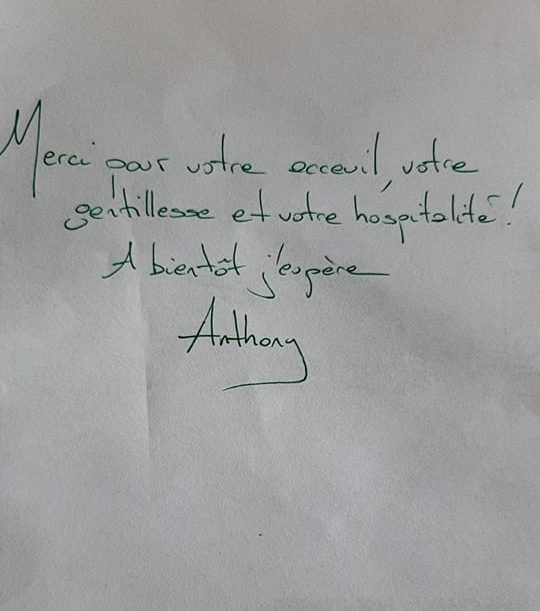 Merci pour votre acceuil, votre
gentillesse et votre hospitalité !
A bientôt j'espère
Anthony